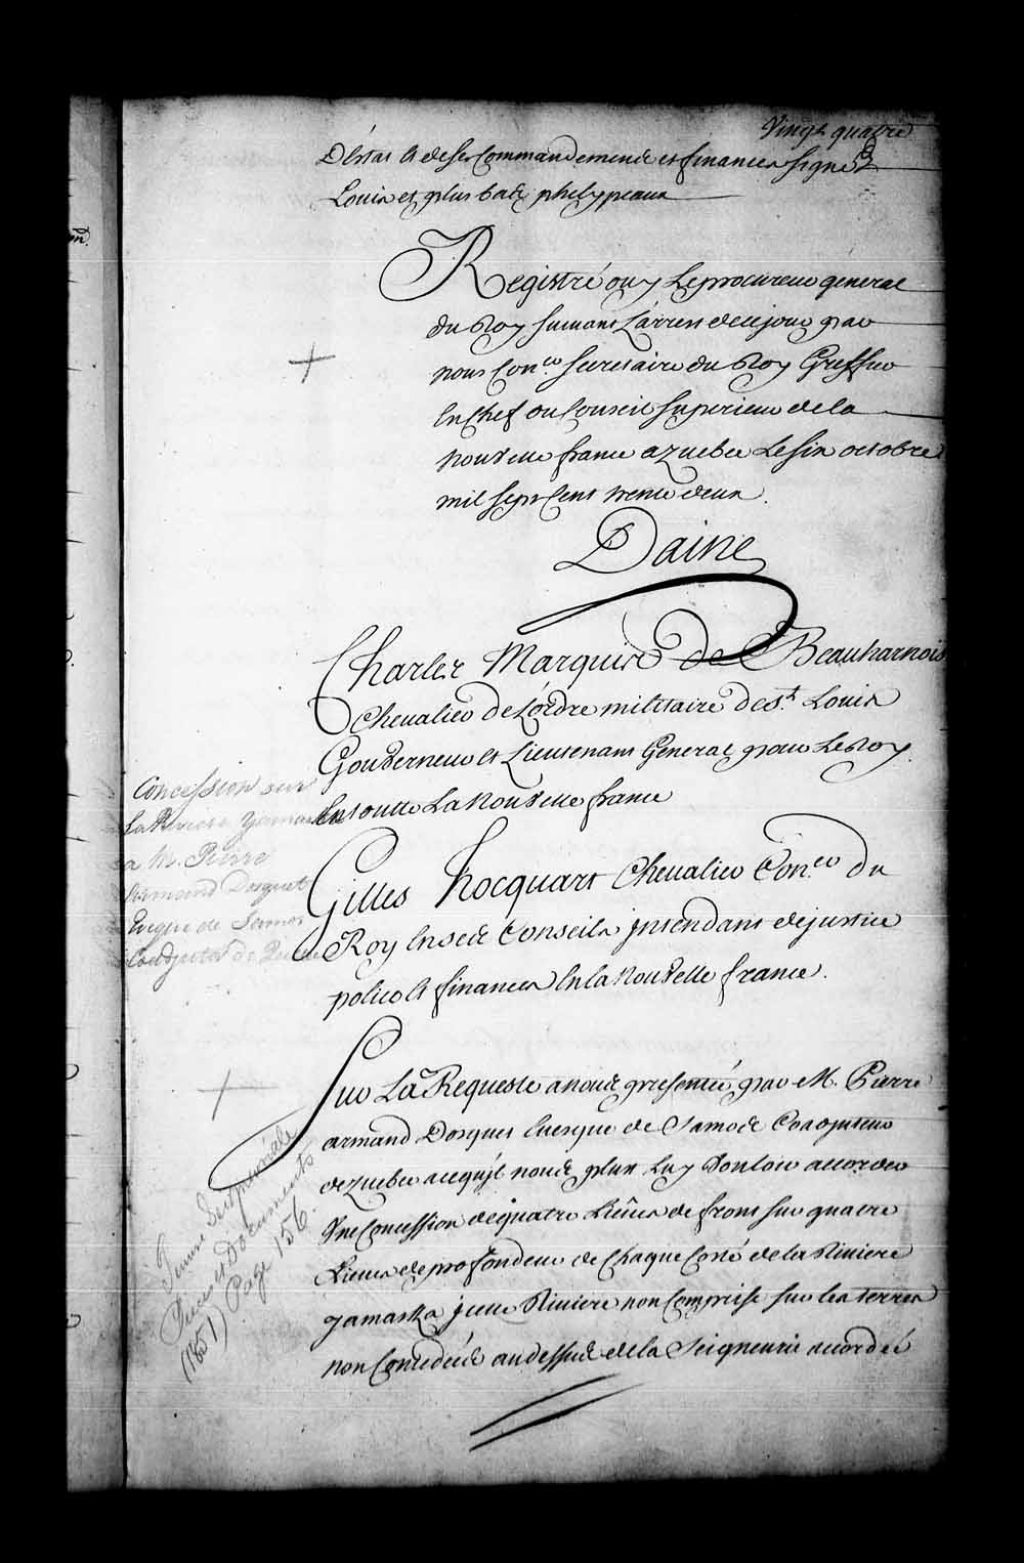 Vingt quatre
D'éstat et de ses Commandemens et finances signé
Louis et plus bas phelypeaux
Registré ouy Le procureur géneral
du Roy suivant L'arrest de ce jour par
nous Con.er Secretaire du Roy Greffier
En Chef au Conseil Superieur de la
nouvelle france a quebec Le six octobre
mil sept Cent trente deux.
Daine
Charles Marquis de Beauharnois
Chevalier de L'ordre militaire de S.t Louis
Gouverneur et Lieutenant General pour Le Roy
En toutte La nouvelle france
Concession sur
La Riviere Yamaska
a M. Pierre
Armand Dosquet
Eveque de Samos
Coadjuteur de Quebec
Gilles hocquart Chevalier Con.er du
Roy En ses Conseils jntendant de justice
police et finances En la nouvelle france.
Sur La Requeste a nous presentée par M. Pierre
armand Dosquet Evesque de Samos Coadjuteur
de quebec a ce qu'jl nous plut Luy Vouloir accorder
Une Concession de quatre Lieües de front sur quatre
Lieues de profondeur de Chaque Costé de la Riviere
yamaska jcelle Riviere non Comprise sur les terres
non Concedées au dessus de la Seigneurie accordée
Tenure Seigneuriale
Documents
(1851) Page 156.